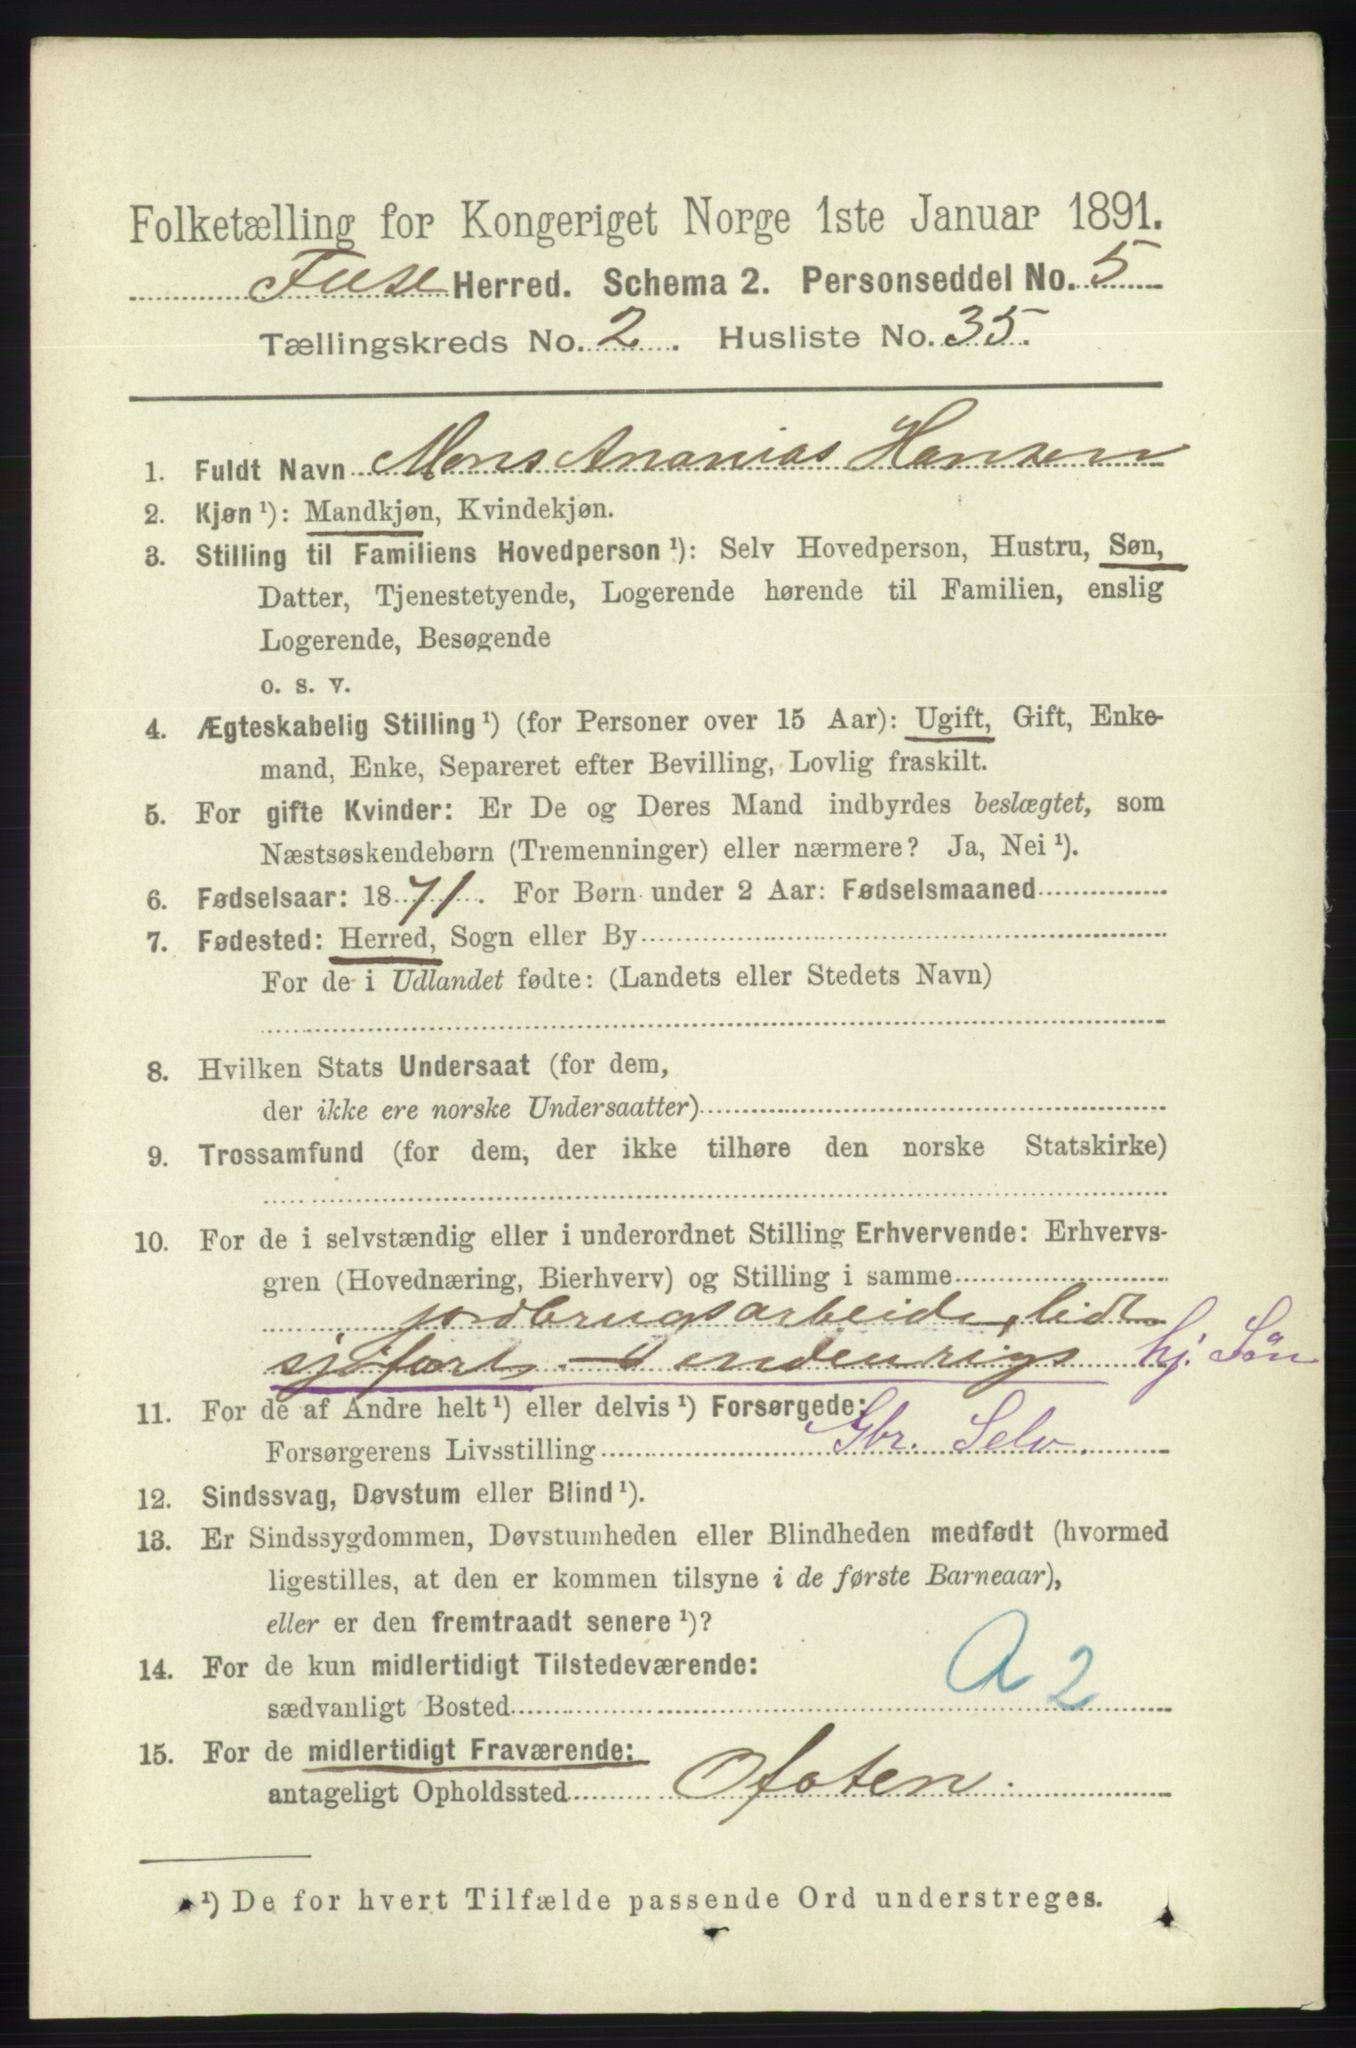 Folketælling for Kongeriget Norge 1ste Januar 1891.
Fuse Herred. Schema 2. Personseddel No. 5
Tællingskreds No. 2. Husliste No. 35.
1. Fuldt Navn Mons Ananias Hansen
2. Kjøn ¹): Mandkjøn, Kvindekjøn.
3. Stilling til Familiens Hovedperson ¹): Selv Hovedperson, Hustru, Søn,
Datter, Tjenestetyende, Logerende hørende til Familien, enslig
Logerende, Besøgende
o. s. v.
4. Ægteskabelig Stilling ¹) (for Personer over 15 Aar): Ugift, Gift, Enke-
mand, Enke, Separeret efter Bevilling, Lovlig fraskilt.
5. For gifte Kvinder: Er De og Deres Mand indbyrdes beslægtet, som
Næstsøskendebørn (Tremenninger) eller nærmere? Ja, Nei ¹).
6. Fødselsaar: 1871. For Børn under 2 Aar: Fødselsmaaned
7. Fødested: Herred, Sogn eller By
For de i Udlandet fødte: (Landets eller Stedets Navn)
8. Hvilken Stats Undersaat (for dem,
der ikke ere norske Undersaatter)
9. Trossamfund (for dem, der ikke tilhøre den norske Statskirke)
10. For de i selvstændig eller i underordnet Stilling Erhvervende: Erhvervs-
gren (Hovednæring, Bierhverv) og Stilling i samme
jordbrugsarbeide, lidt
sjøfart - indenrigs hj. Sön
11. For de af Andre helt ¹) eller delvis ¹) Forsørgede:
Forsørgerens Livsstilling Gbr. Selv.
12. Sindssvag, Døvstum eller Blind ¹).
13. Er Sindssygdommen, Døvstumheden eller Blindheden medfødt (hvormed
ligestilles, at den er kommen tilsyne i de første Barneaar),
eller er den fremtraadt senere ¹)?
14. For de kun midlertidigt Tilstedeværende:
sædvanligt Bosted A 2
15. For de midlertidigt Fraværende:
antageligt Opholdssted Ofoten.
¹) De for hvert Tilfælde passende Ord understreges.